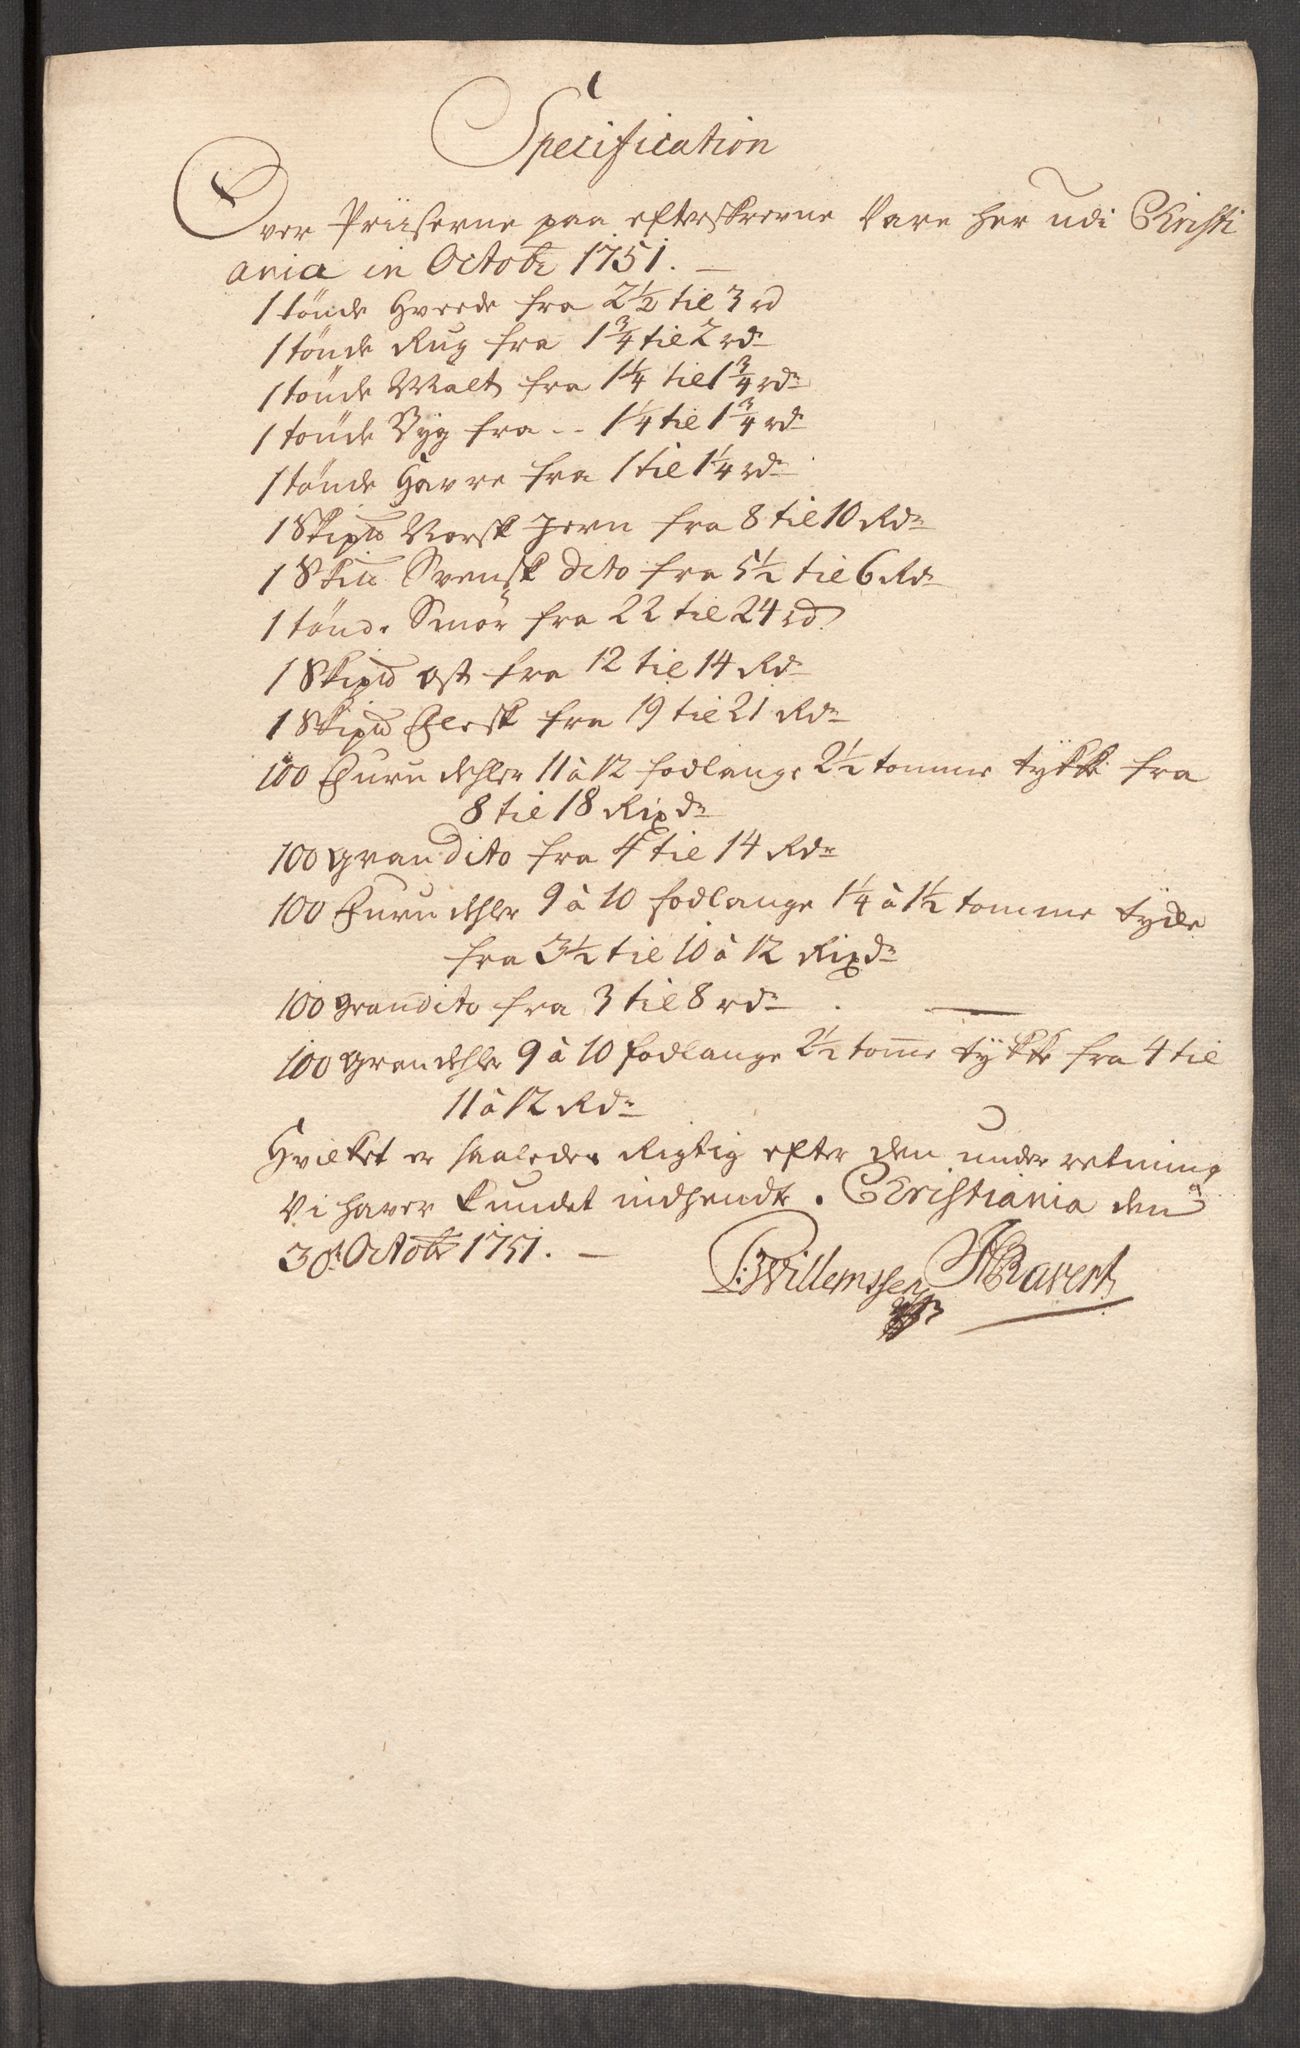 Specification
Over Priiserne paa efterskrevne Vare her udi Christi
ania in Octobr 1751. —
1 tönde Hvede fra 2½ til 3 rd
1 tönde Rug fra 1¾ til 2 rdr
1 tönde Malt fra 1¼ til 1¾ rdr
1 tönde Byg fra -- 1¼ til 1¾ rdr
1 tönde Havre fra 1 til 1¼ rdr
1 Skipd Norsk Jern fra 8 til 10 Rdr
1 Skip Svensk dito fra 5½ til 6 Rdr
1 tönde Smör fra 22 til 24 rd
1 Skipd Ost fra 12 til 14 Rdr
1 Skipd Flesk fra 19 til 21 Rdr
100 Furu dehler 11 à 12 fodlange 2½ tomme tÿkke fra
8 til 18 Rixdr
100 gran dito fra 4 til 14 Rdr
100 Furu dehler 9 à 10 fodlange 1¼ à 1½ tomme
fra 3½ til 10 à 12 Rixdr
100 gran dito fra 3 til 8 rdr . —
100 gran dehler 9 à 10 fodlange 2½ tome tÿkke fra 4 til
11 à 12 Rdr
Hvilket er saaledes Rigtig efter den underretning
Vi haver kundet indhendte. Christiania den
30t Octobr 1751. —
P: Willemssen Ravert